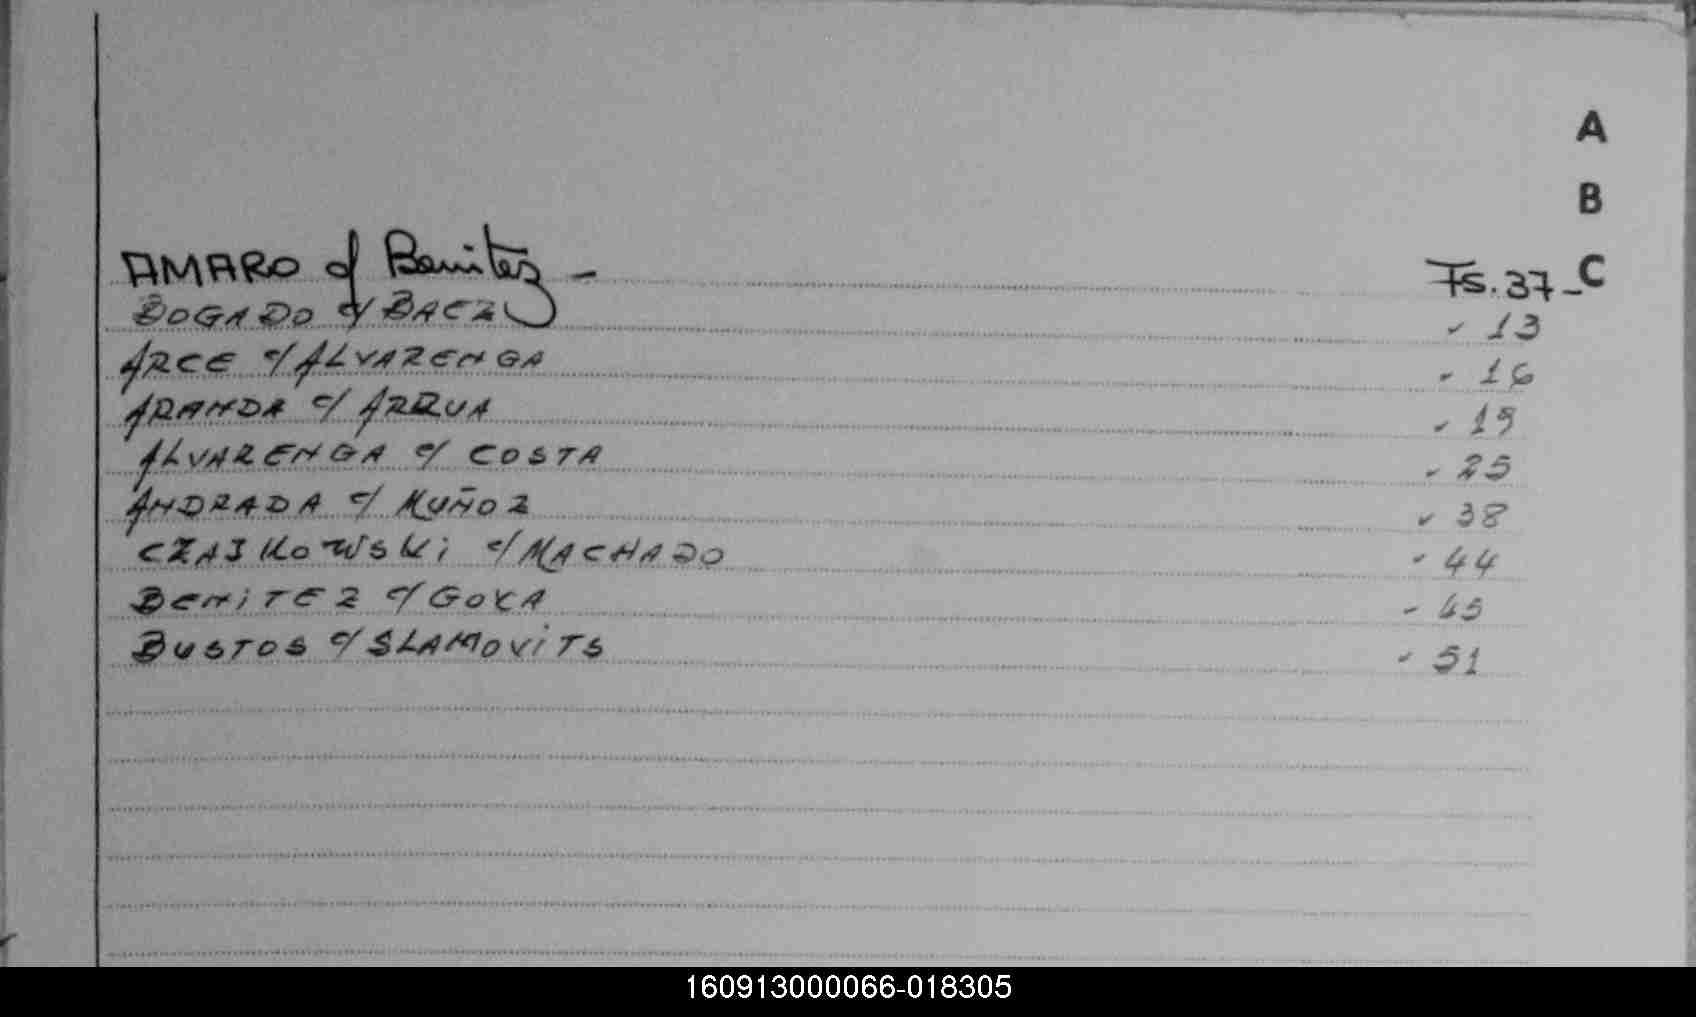 A
B
C
AMARO c/ Benitez - Fs. 37-
BOGADO c/ BAEZ " 13
ARCE c/ ALVARENGA " 16
ARANDA c/ ARRUA " 19
ALVARENGA c/ COSTA " 25
ANDRADA c/ MUÑOZ " 38
CZAJKOWSKi c/ MACHADO " 44
BENiTEZ c/ GOYA " 45
BUSTOS c/ SLAMOViTS " 51
160913000066-018305